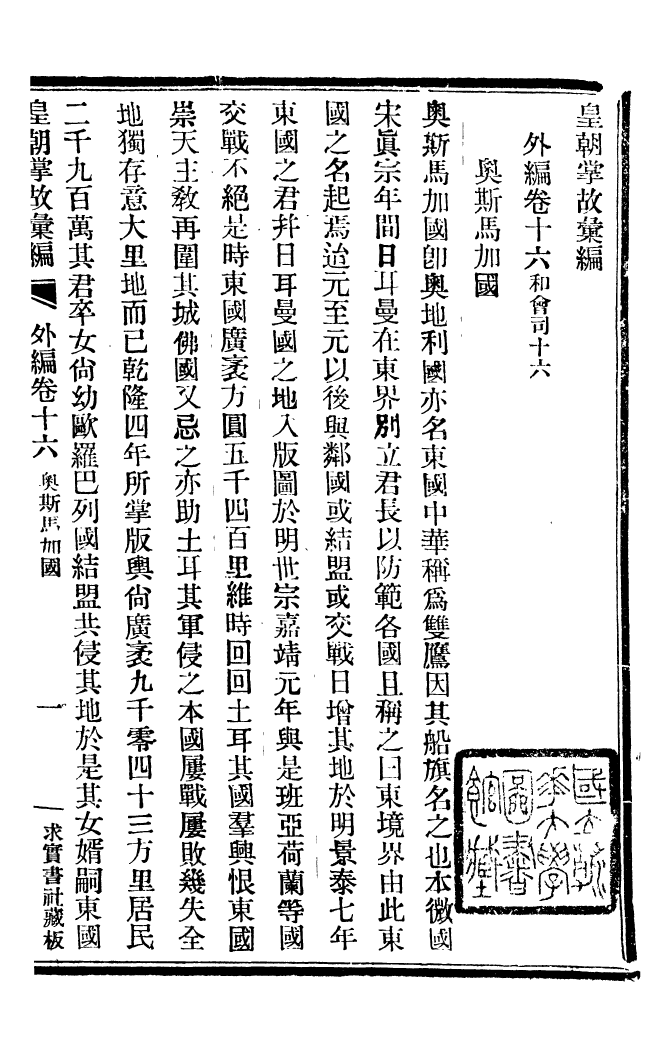 皇朝掌故彙編
外編卷十六和會司十六
奧斯馬加國
奧斯馬加國卽奧地利國亦名東國中華稱爲雙鷹因其船旗名之也本微國
宋眞宗年間日耳曼在東界別立君長以防範各國且稱之曰東境界由此東
國之名起焉迨元至元以後與鄰國或結盟或交戰日增其地於明景泰七年
東國之君幷日耳曼國之地入版圖於明世宗嘉靖元年與是班亞荷蘭等國
交戰不絕是時東國廣袤方圓五千四百里維時回回土耳其國羣興恨東國
崇天主敎再圍其城佛國又忌之亦助土耳其軍侵之本國屢戰屢敗幾失全
地獨存意大里地而已乾隆四年所掌版輿尙廣袤九千零四十三方里居民
二千九百萬其君卒女尙幼歐羅巴列國結盟共侵其地於是其女婿嗣東國
皇朝掌故彙編 外編卷十六 奧斯馬加國 一 求實書社藏板
國立清華大學圖書館藏